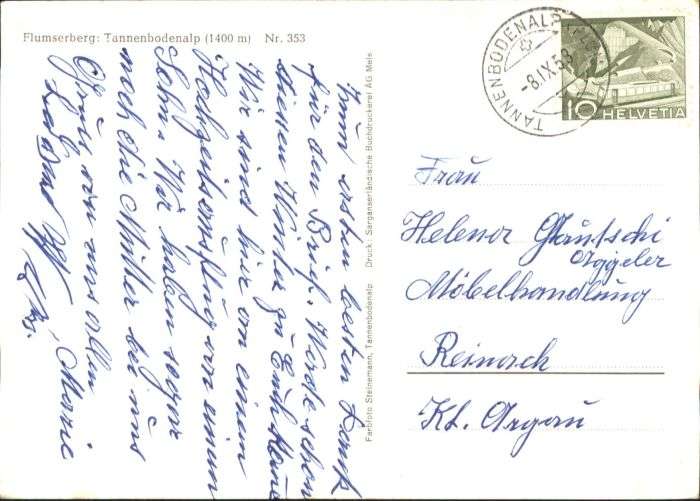 Flumserberg: Tannenbodenalp (1400 m) Nr. 353
Nun erstan besten Dank
für den Brief. Werde schon
diesen Winter zu Euch
Wir sind hier an einem
Hochzeitsausflug von einem
Sohn. Wir haben sogar
noch die Mutter bei uns
Grüsse von uns allen
Marie
Farbfoto Steinemann, Tannenbodenalp Druck: Sarganserländische Buchdruckerei AG Mels
TANNENBODENALP
-8.IX.58
10 HELVETIA
Frau
Helener Gautschi
Aggeler
Möbelhandlung
Reinach
Kt. Argau